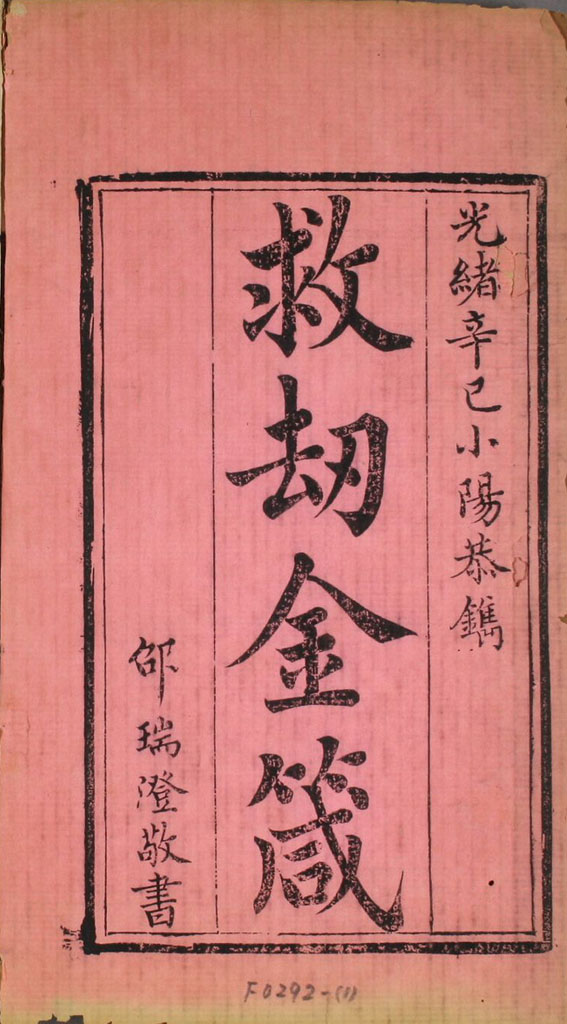 光緒辛巳小陽恭鐫
救刧金箴
邵瑞澄敬書
F0292-(1)